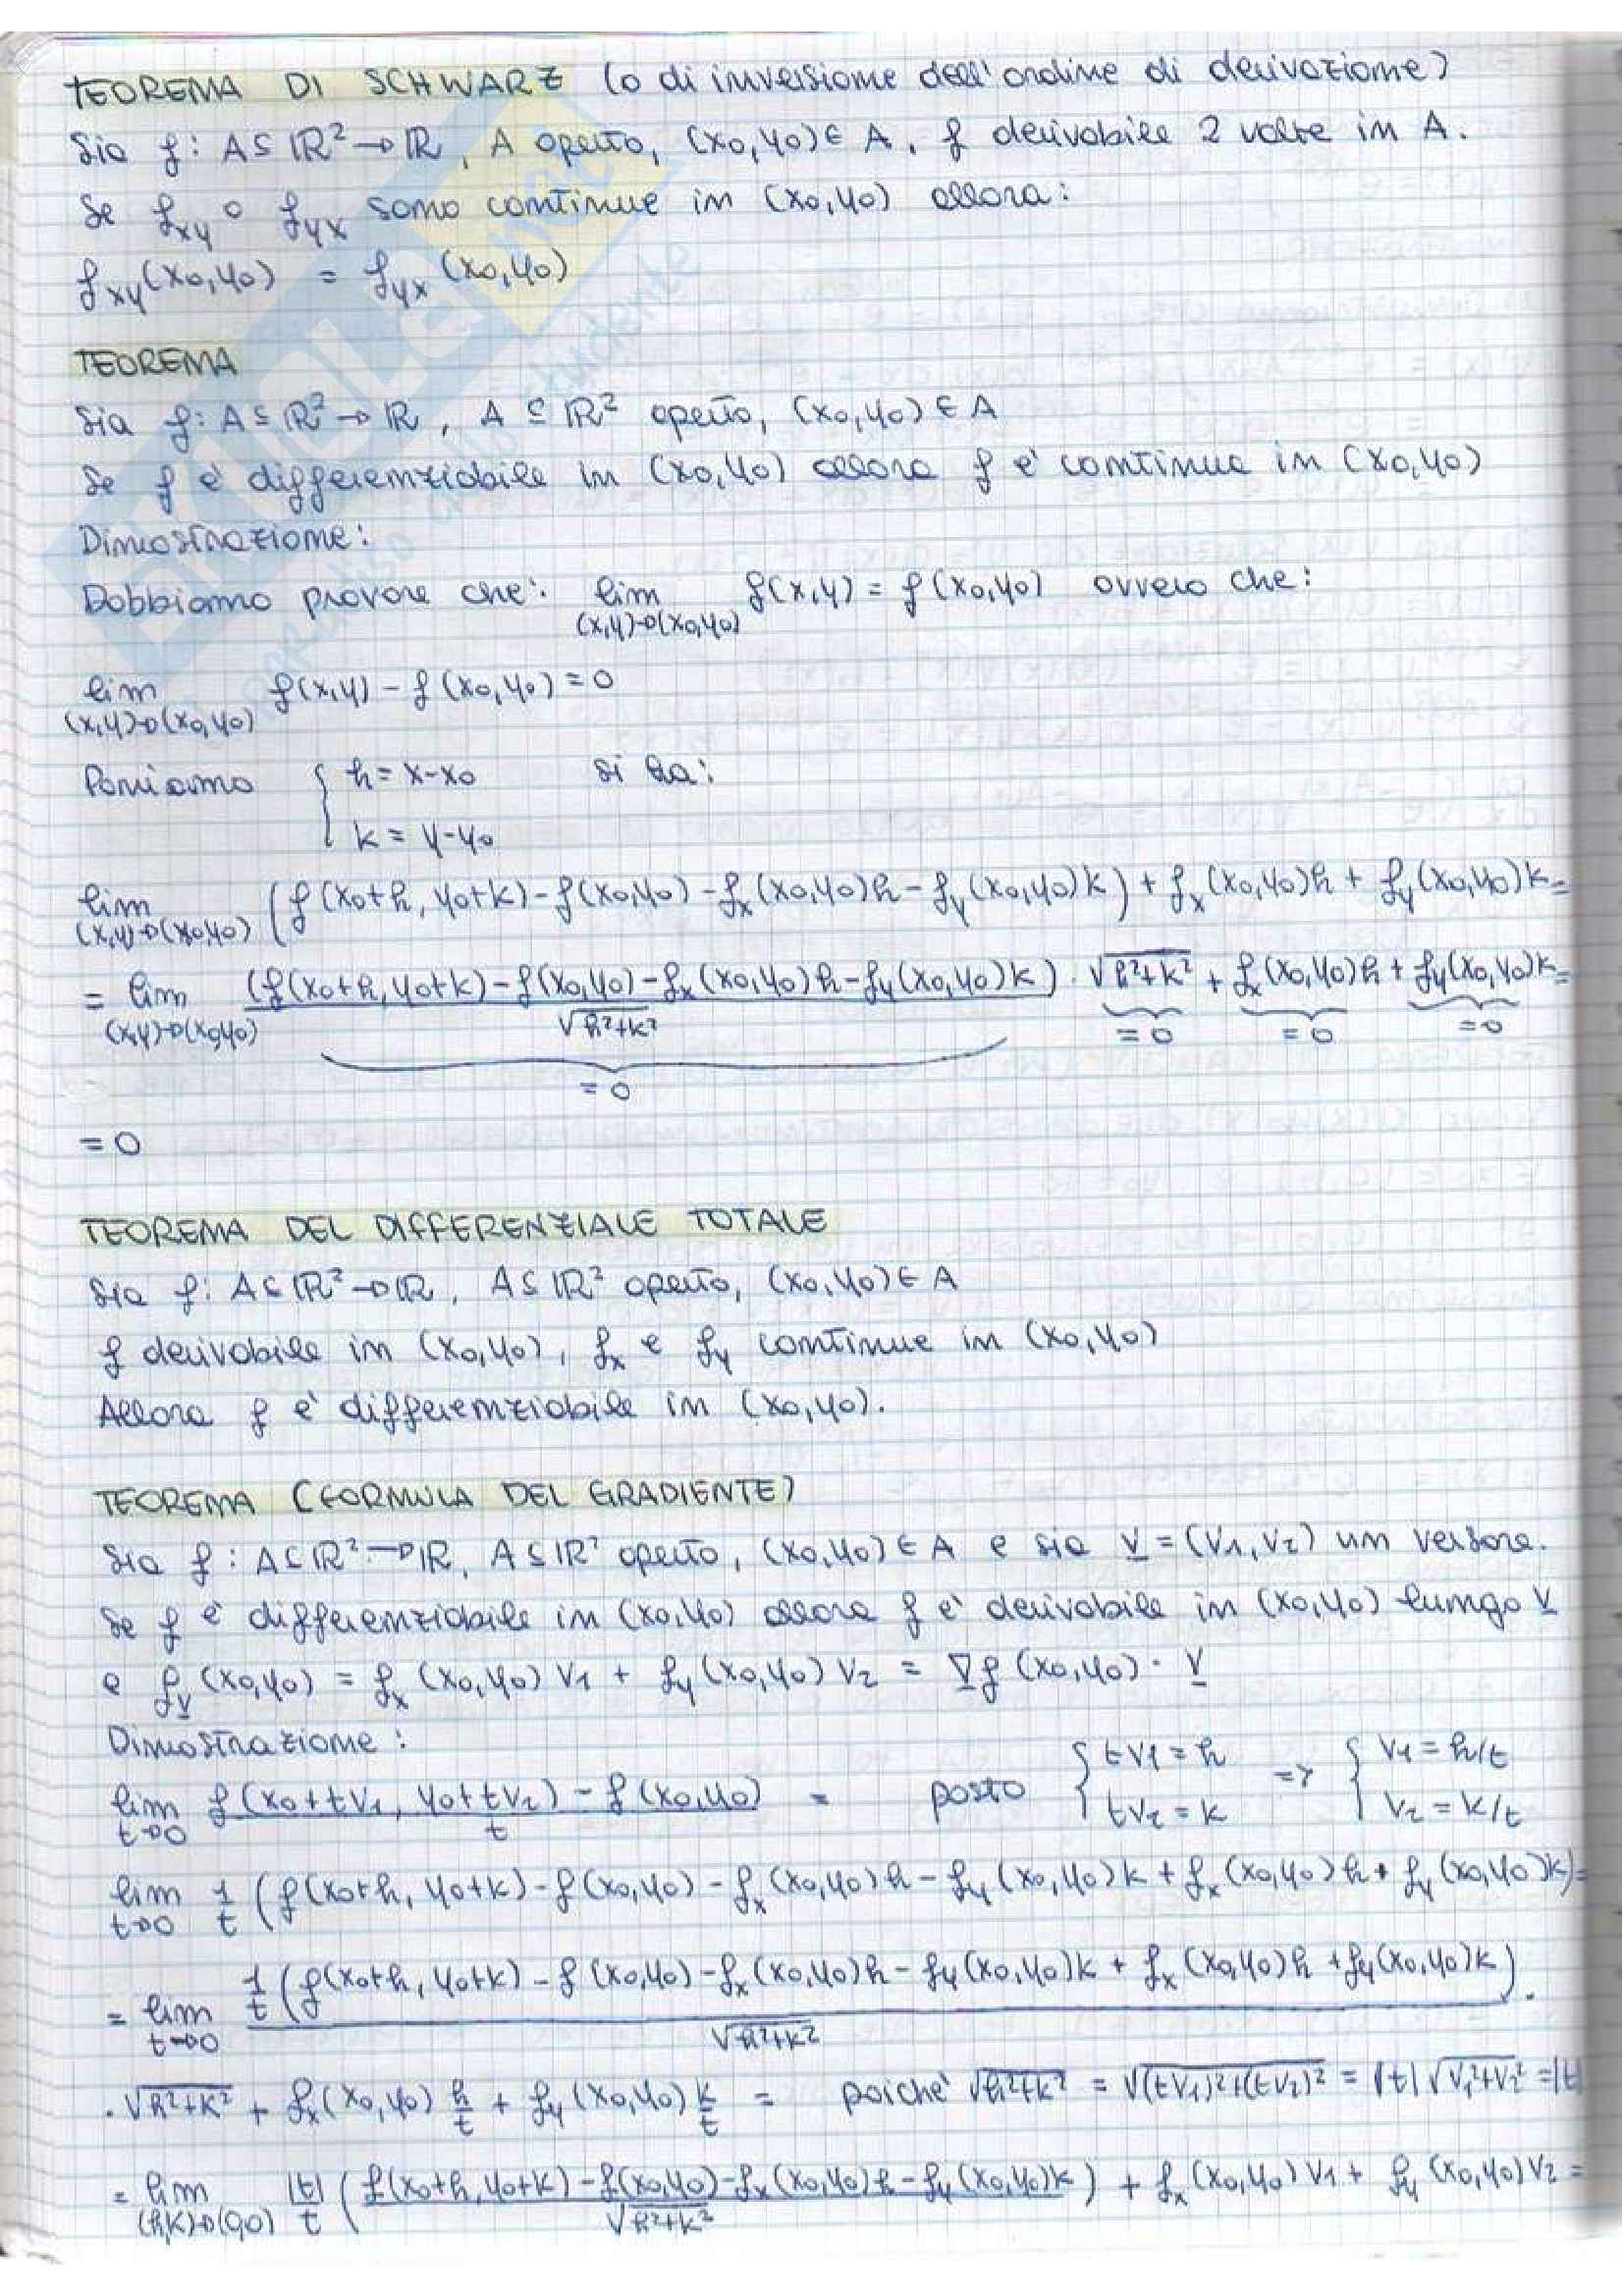 TEOREMA DI SCHWARZ (o di inversione dell'ordine di derivazione)
Sia f: A⊆ℝ²→ℝ, A aperto, (x0,y0)∈A, f derivabile 2 volte in A.
Se fxy o fyx sono continue in (x0,y0) allora:
fxy(x0,y0) = fyx(x0,y0)
TEOREMA
Sia f: A⊆ℝ²→ℝ, A⊆ℝ² aperto, (x0,y0)∈A
Se f è differenziabile in (x0,y0) allora f è continua in (x0,y0)
Dimostrazione:
Dobbiamo provare che: lim f(x,y) = f(x0,y0) ovvero che:
(x,y)→(x0,y0)
lim f(x,y) - f(x0,y0) = 0
(x,y)→(x0,y0)
Poniamo { h = x-x0 si ha:
k = y-y0
lim (f(x0+h, y0+k) - f(x0,y0) - fx(x0,y0)h - fy(x0,y0)k) + fx(x0,y0)h + fy(x0,y0)k =
(x,y)→(x0,y0)
= lim (f(x0+h, y0+k) - f(x0,y0) - fx(x0,y0)h - fy(x0,y0)k) · √h²+k² + fx(x0,y0)h + fy(x0,y0)k =
(x,y)→(x0,y0) √h²+k² =0 =0 =0
= 0
= 0
TEOREMA DEL DIFFERENZIALE TOTALE
Sia f: A⊆ℝ²→ℝ, A⊆ℝ² aperto, (x0,y0)∈A
f derivabile in (x0,y0), fx e fy continue in (x0,y0)
Allora f è differenziabile in (x0,y0).
TEOREMA (FORMULA DEL GRADIENTE)
Sia f: A⊆ℝ²→ℝ, A⊆ℝ² aperto, (x0,y0)∈A e sia v = (v1,v2) un versore.
Se f è differenziabile in (x0,y0) allora f è derivabile in (x0,y0) lungo v
e fv(x0,y0) = fx(x0,y0) v1 + fy(x0,y0) v2 = ∇f(x0,y0) · v
Dimostrazione:
lim f(x0+tv1, y0+tv2) - f(x0,y0) = posto { tv1 = h => { v1 = h/t
t→0 t tv2 = k v2 = k/t
lim 1/t (f(x0+h, y0+k) - f(x0,y0) - fx(x0,y0)h - fy(x0,y0)k + fx(x0,y0)h + fy(x0,y0)k) =
t→0
= lim 1/t (f(x0+h, y0+k) - f(x0,y0) - fx(x0,y0)h - fy(x0,y0)k + fx(x0,y0)h + fy(x0,y0)k) ·
t→0 √h²+k²
· √h²+k² + fx(x0,y0) h/t + fy(x0,y0) k/t = poiché √h²+k² = √(tv1)²+(tv2)² = |t| √v1²+v2² = |t|
= lim |t|/t (f(x0+h, y0+k) - f(x0,y0) - fx(x0,y0)h - fy(x0,y0)k) + fx(x0,y0) v1 + fy(x0,y0) v2 =
(h,k)→(0,0) √h²+k²